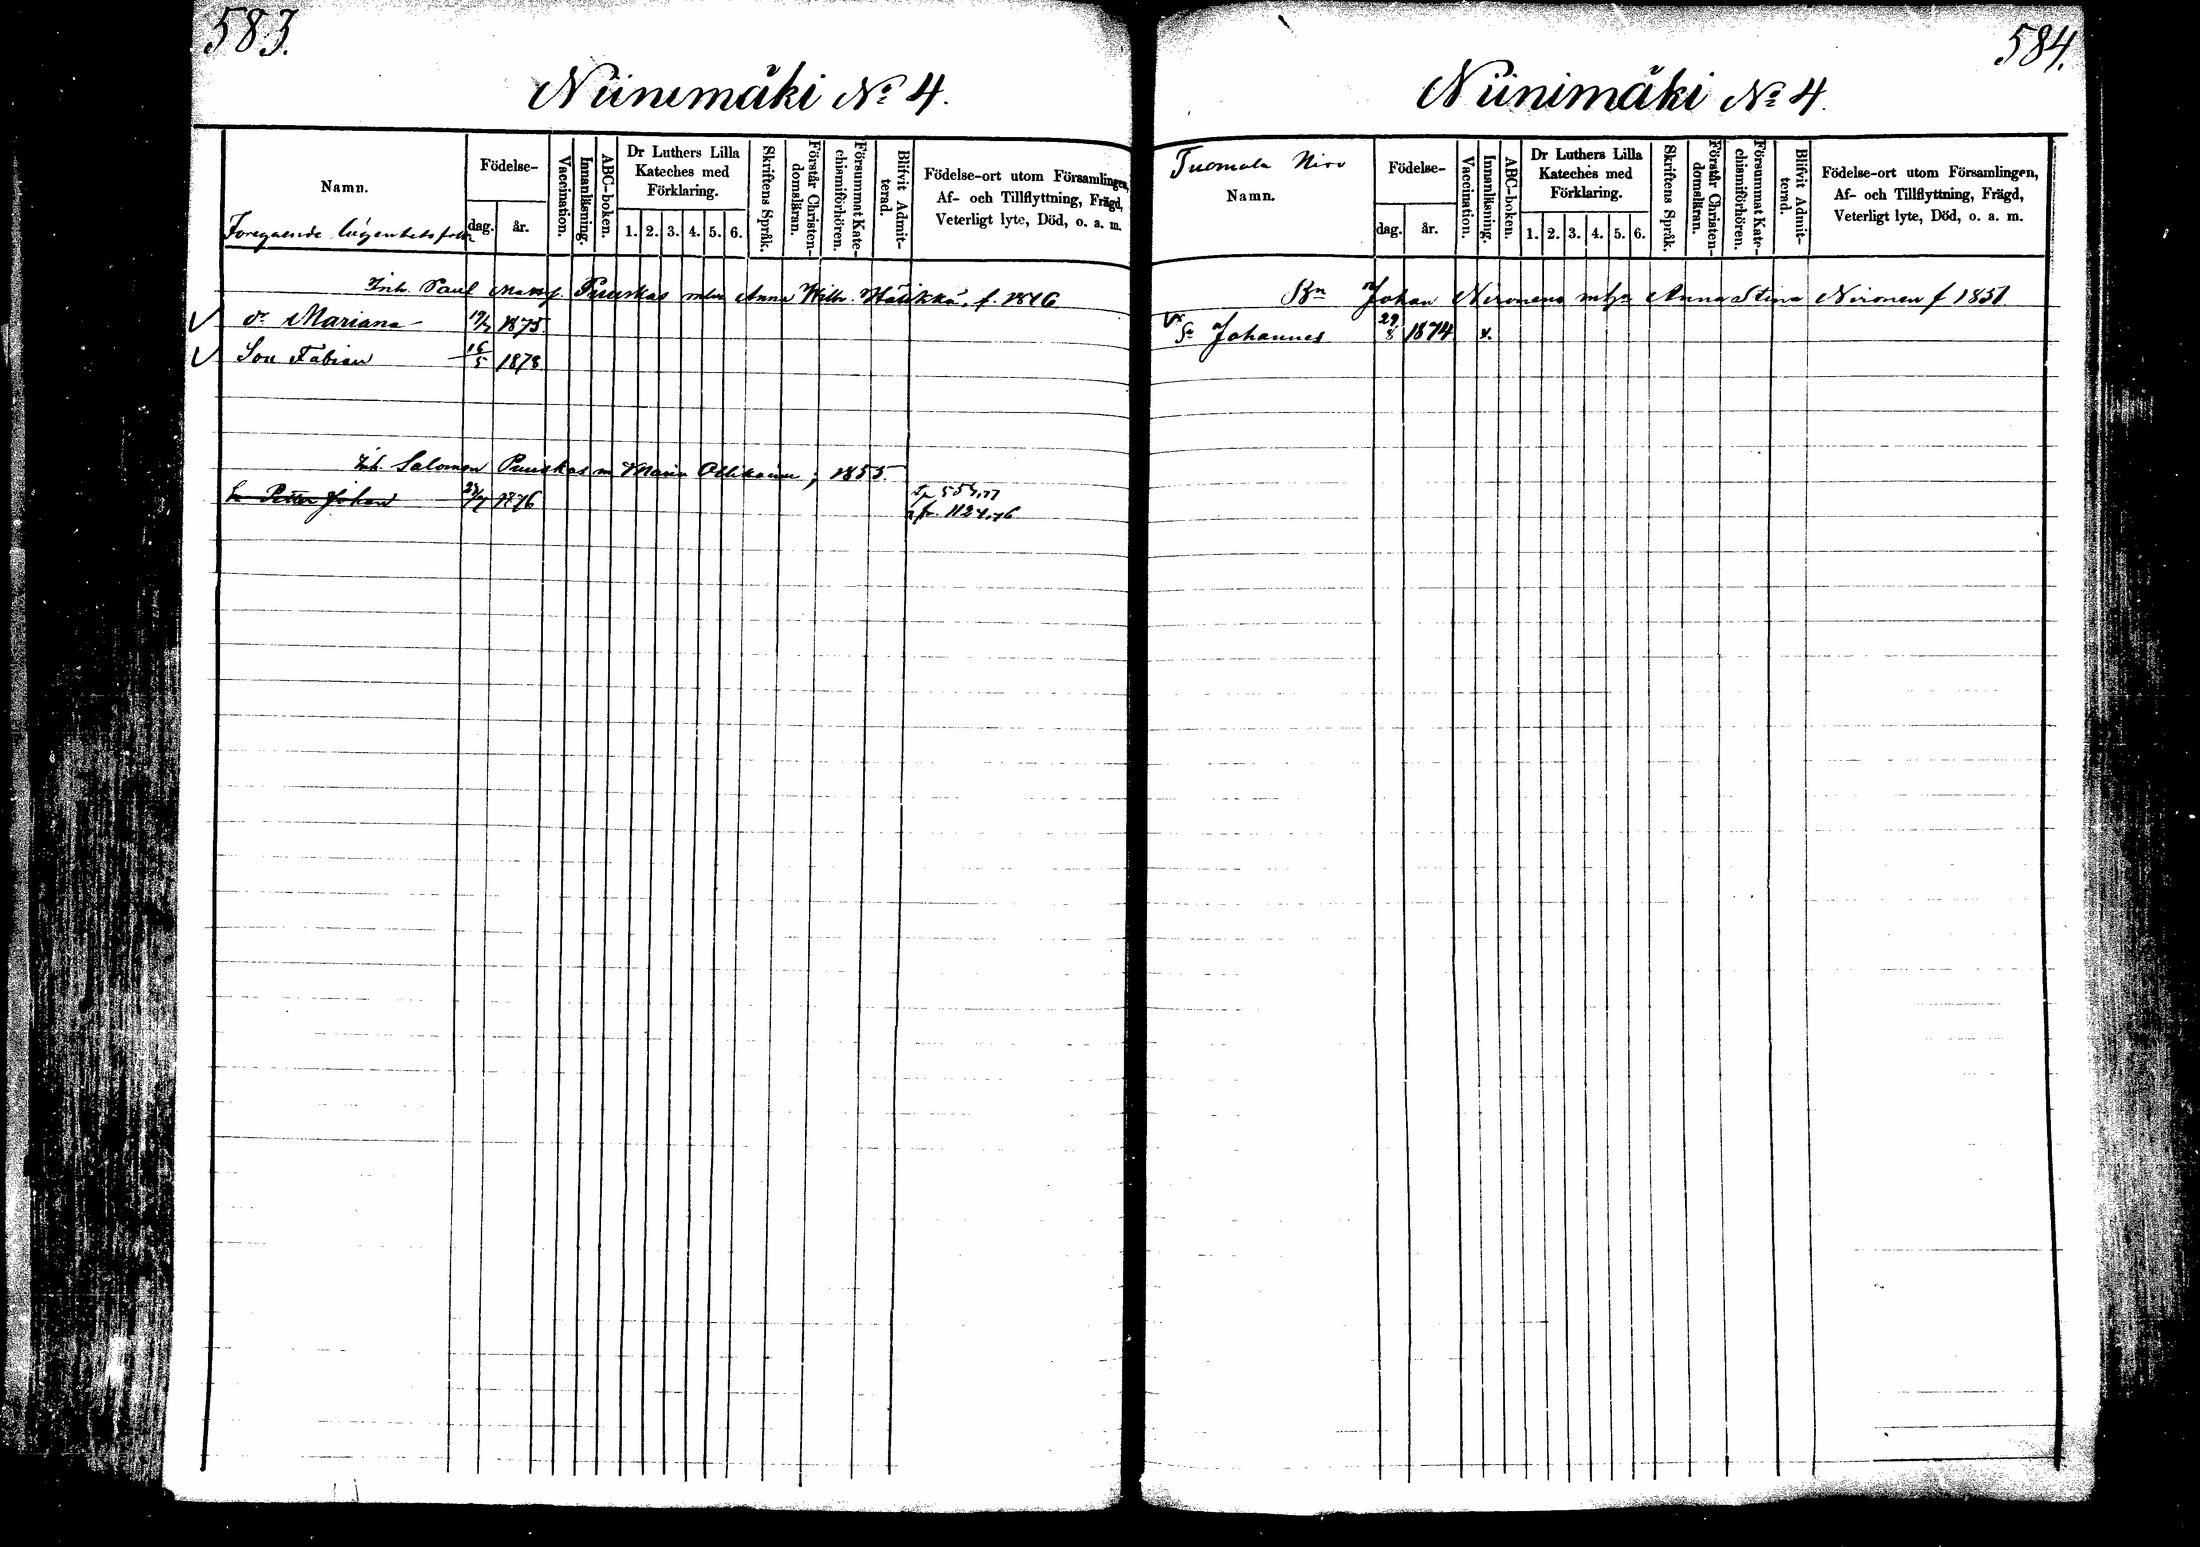 583.
Niinimäki No 4.
Namn.
Föregående lägenhets folk
Födelse-
dag.
år.
Vaccination.
Innanläsning.
ABC-boken.
Dr Luthers Lilla
Kateches med
Förklaring.
1. 2. 3. 4. 5. 6.
Skriftens Språk.
Förstår Christen-
domsläran.
Försummat Kate-
chismiförhören.
Blifvit Admit-
terad.
Födelse-ort utom Församlingen,
Af- och Tillflyttning, Frägd,
Veterligt lyte, Död, o. a. m.
Inh. Paul Puuskas Anna Wilh. Häikkä, f. 1846
dr Mariana 1875
Son Fabian 16/5 1878
Inh. Salomon Puuskas m Maria 1855.
Petter Johan 1876
584.
Niinimäki No 4.
Tuomala Niro
Namn.
Födelse-
dag.
år.
Vaccination.
Innanläsning.
ABC-boken.
Dr Luthers Lilla
Kateches med
Förklaring.
1. 2. 3. 4. 5. 6.
Skriftens Språk.
Förstår Christen-
domsläran.
Försummat Kate-
chismiförhören.
Blifvit Admit-
terad.
Födelse-ort utom Församlingen,
Af- och Tillflyttning, Frägd,
Veterligt lyte, Död, o. a. m.
Bn Johan Nironens Anna Stina Nironen f 1851
Sn Johannes 29/8 1874 x.